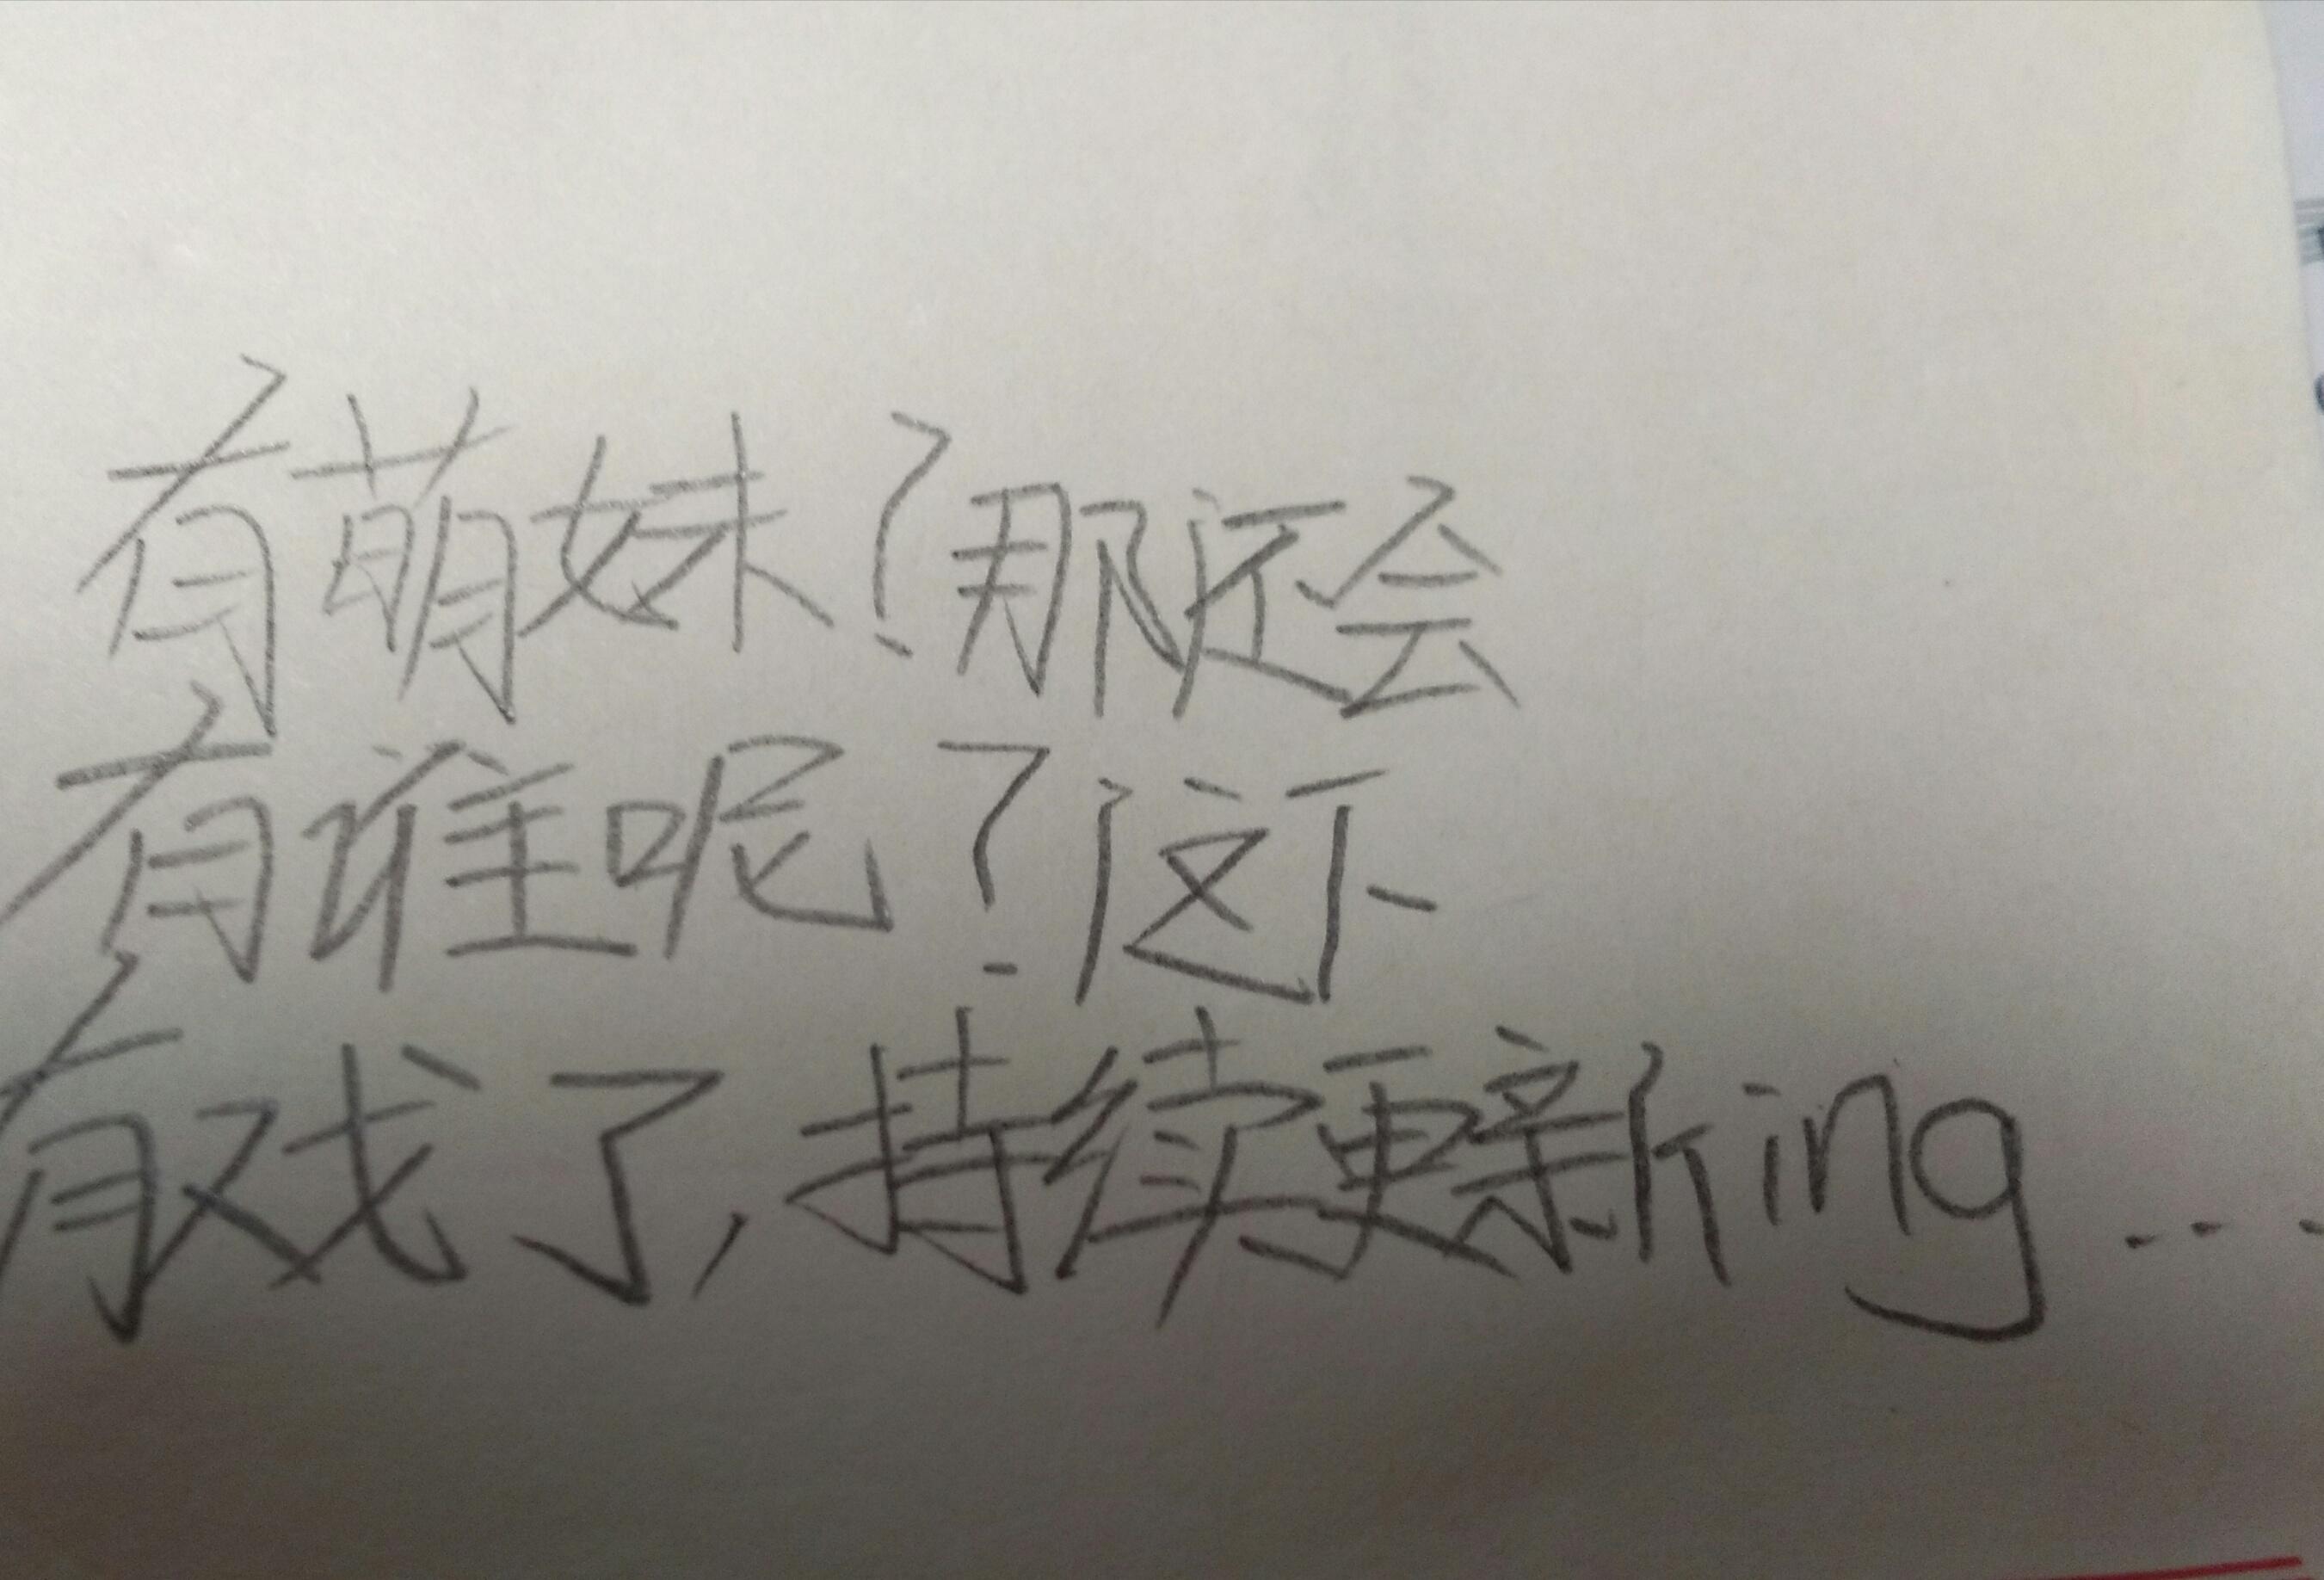 有萌妹？那还会
有谁呢？这下
有戏了，持续更新ing...